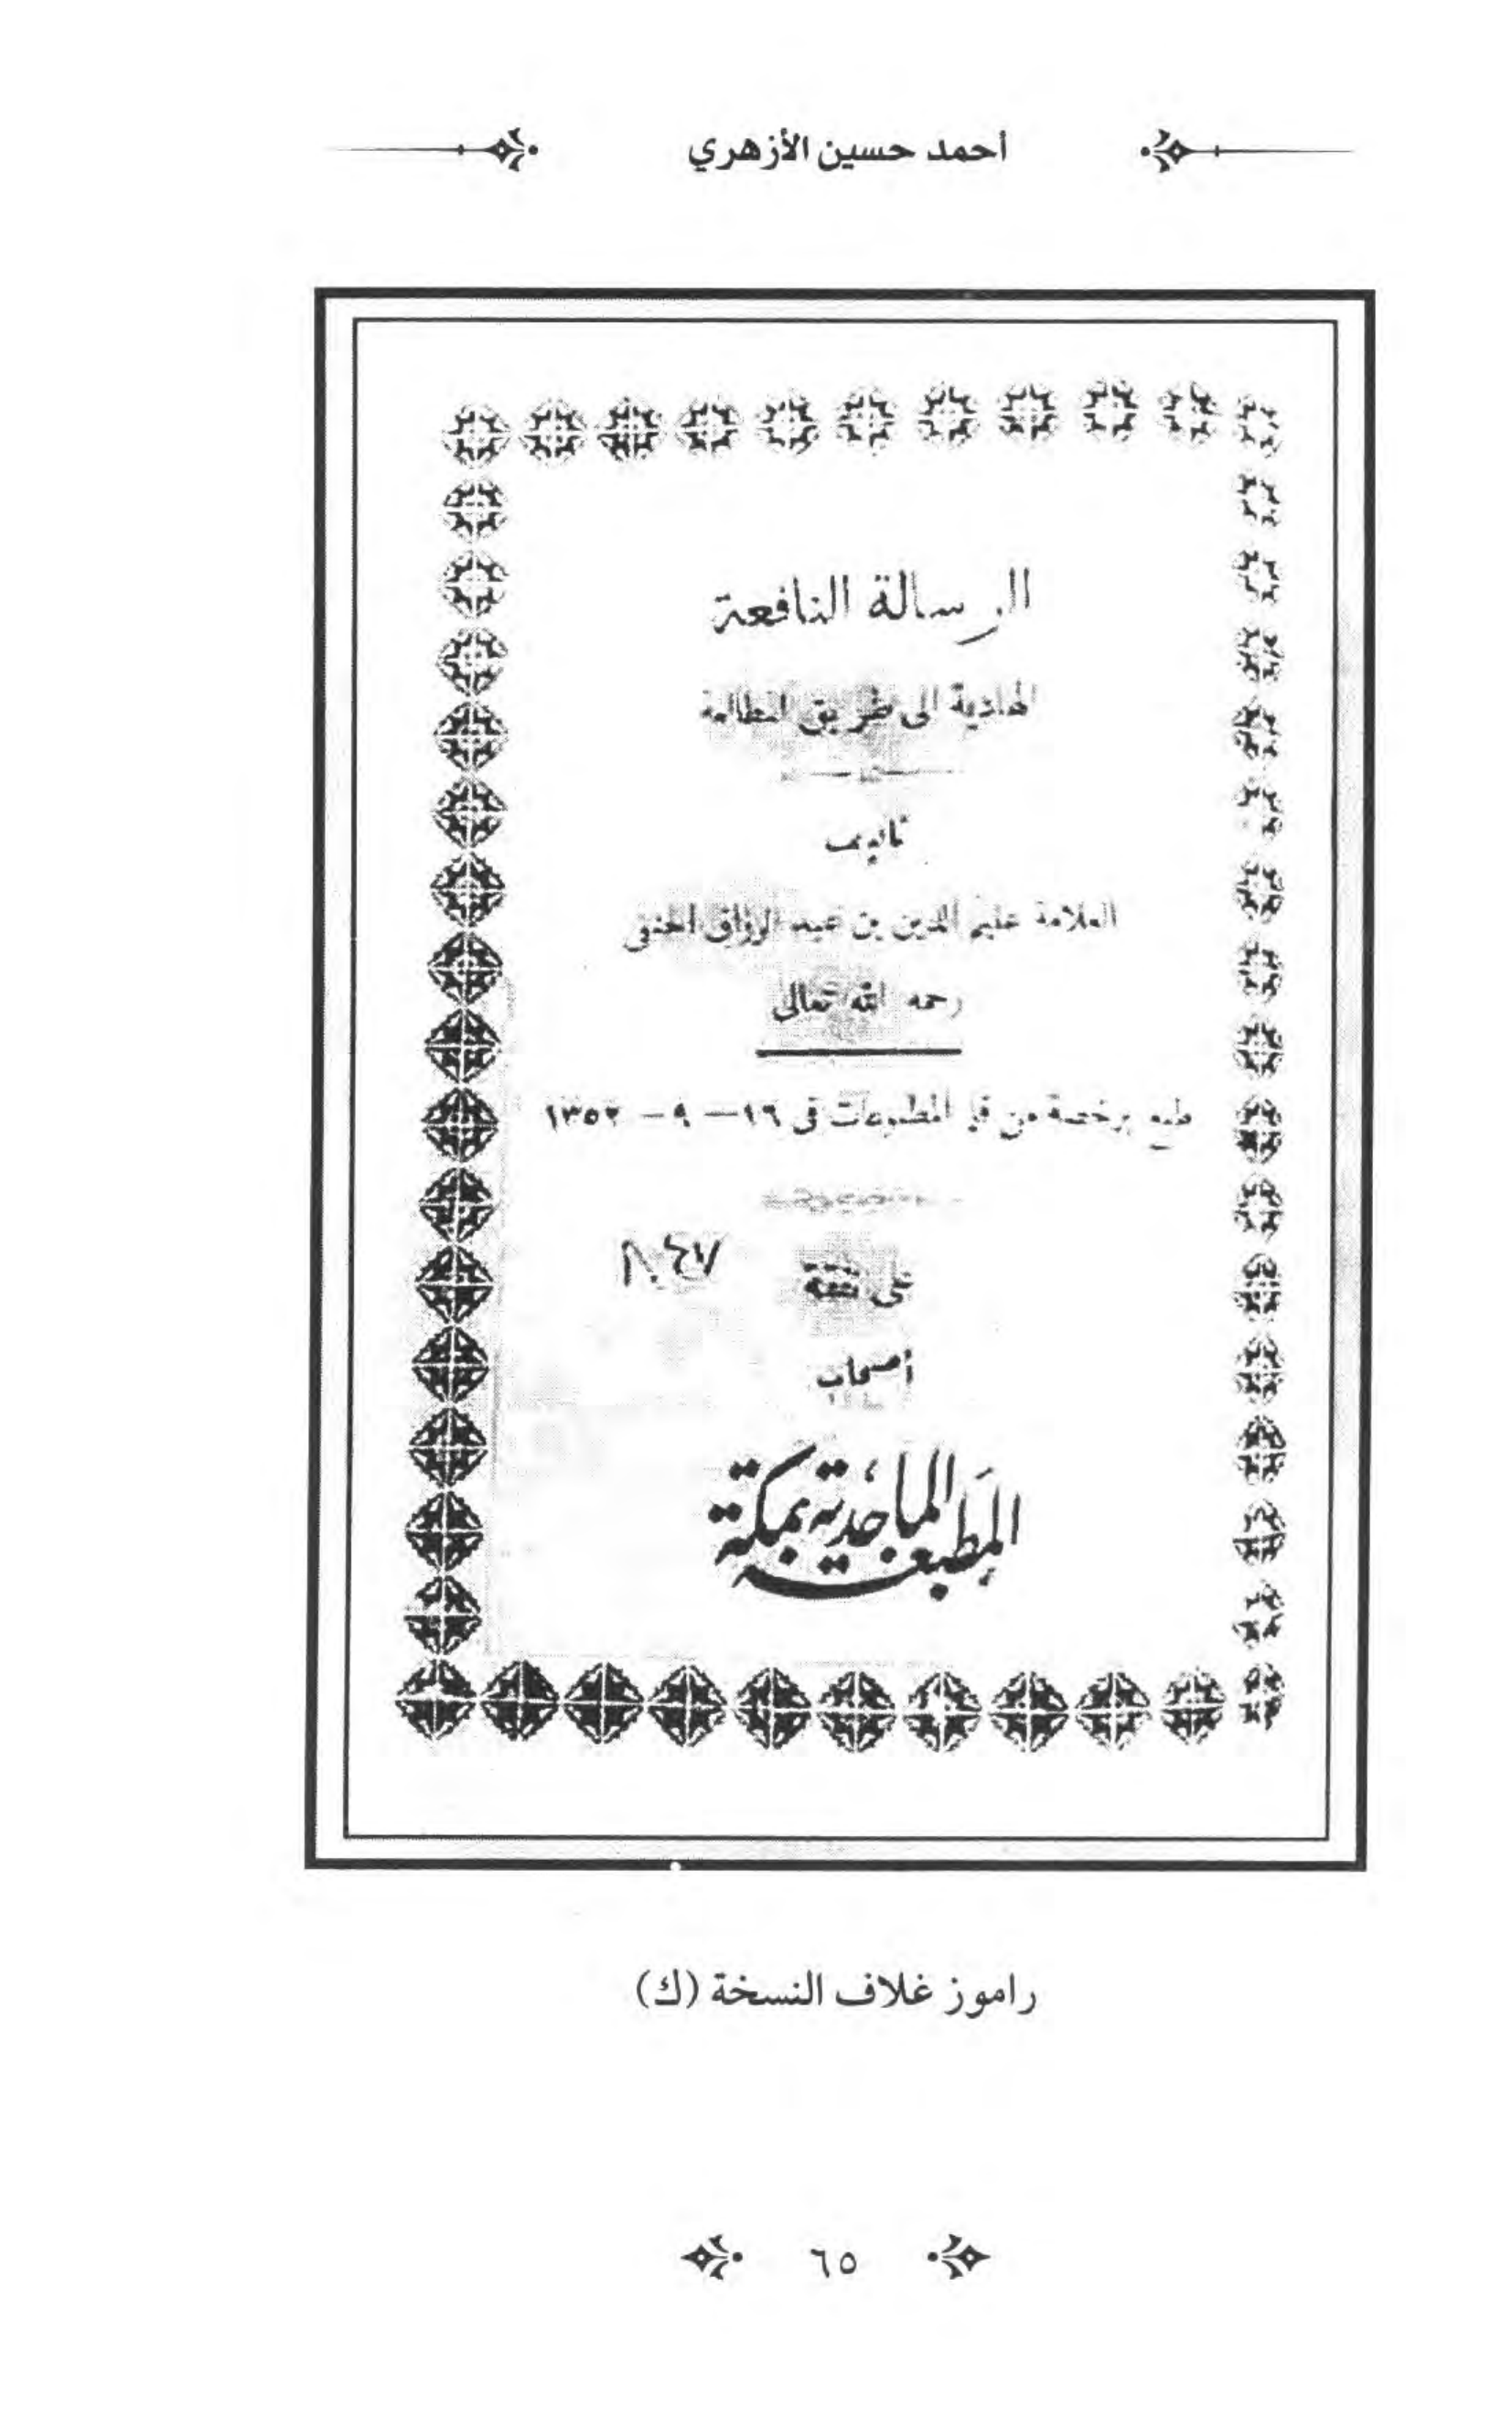 أحمد حسين الأزهري
الرسالة النافعة
الهادية الى طريق المطالعة
تأليف
العلامة عليم الدين بن عبد الرزاق الحنفى
رحمه الله تعالى
طبع برخصة من قلم المطبوعات فى ١٦ — ٩ — ١٣٥٢
على نفقة
أصحاب
المطبعة الماجدية بمكة
راموز غلاف النسخة (ك)
٦٥